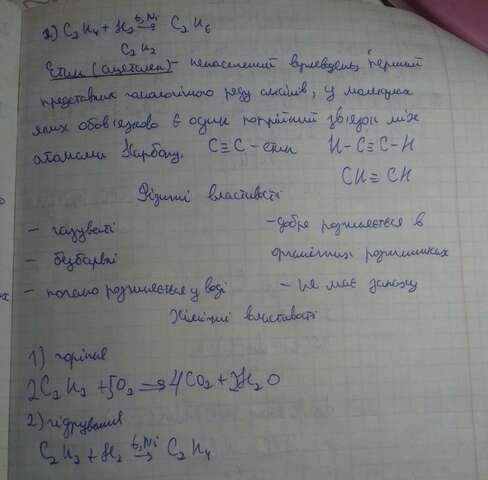 2) C₂H₄ + H₂ →(t, Ni) C₂H₆
C₂H₂
Етин (ацетилен) - ненасичений вуглеводень, перший
представник гомологічного ряду алкінів, у молекулах
яких обов'язково є один потрійний зв'язок між
атомами Карбону. C≡C - етин H-C≡C-H
CH≡CH
Фізичні властивості
- газуваті - добре розчиняється в
- безбарвні органічних розчинниках
- погано розчиняється у воді - не має запаху
Хімічні властивості
1) горіння
2C₂H₂ + 5O₂ → 4CO₂ + 2H₂O
2) гідрування
C₂H₂ + H₂ →(t, Ni) C₂H₄